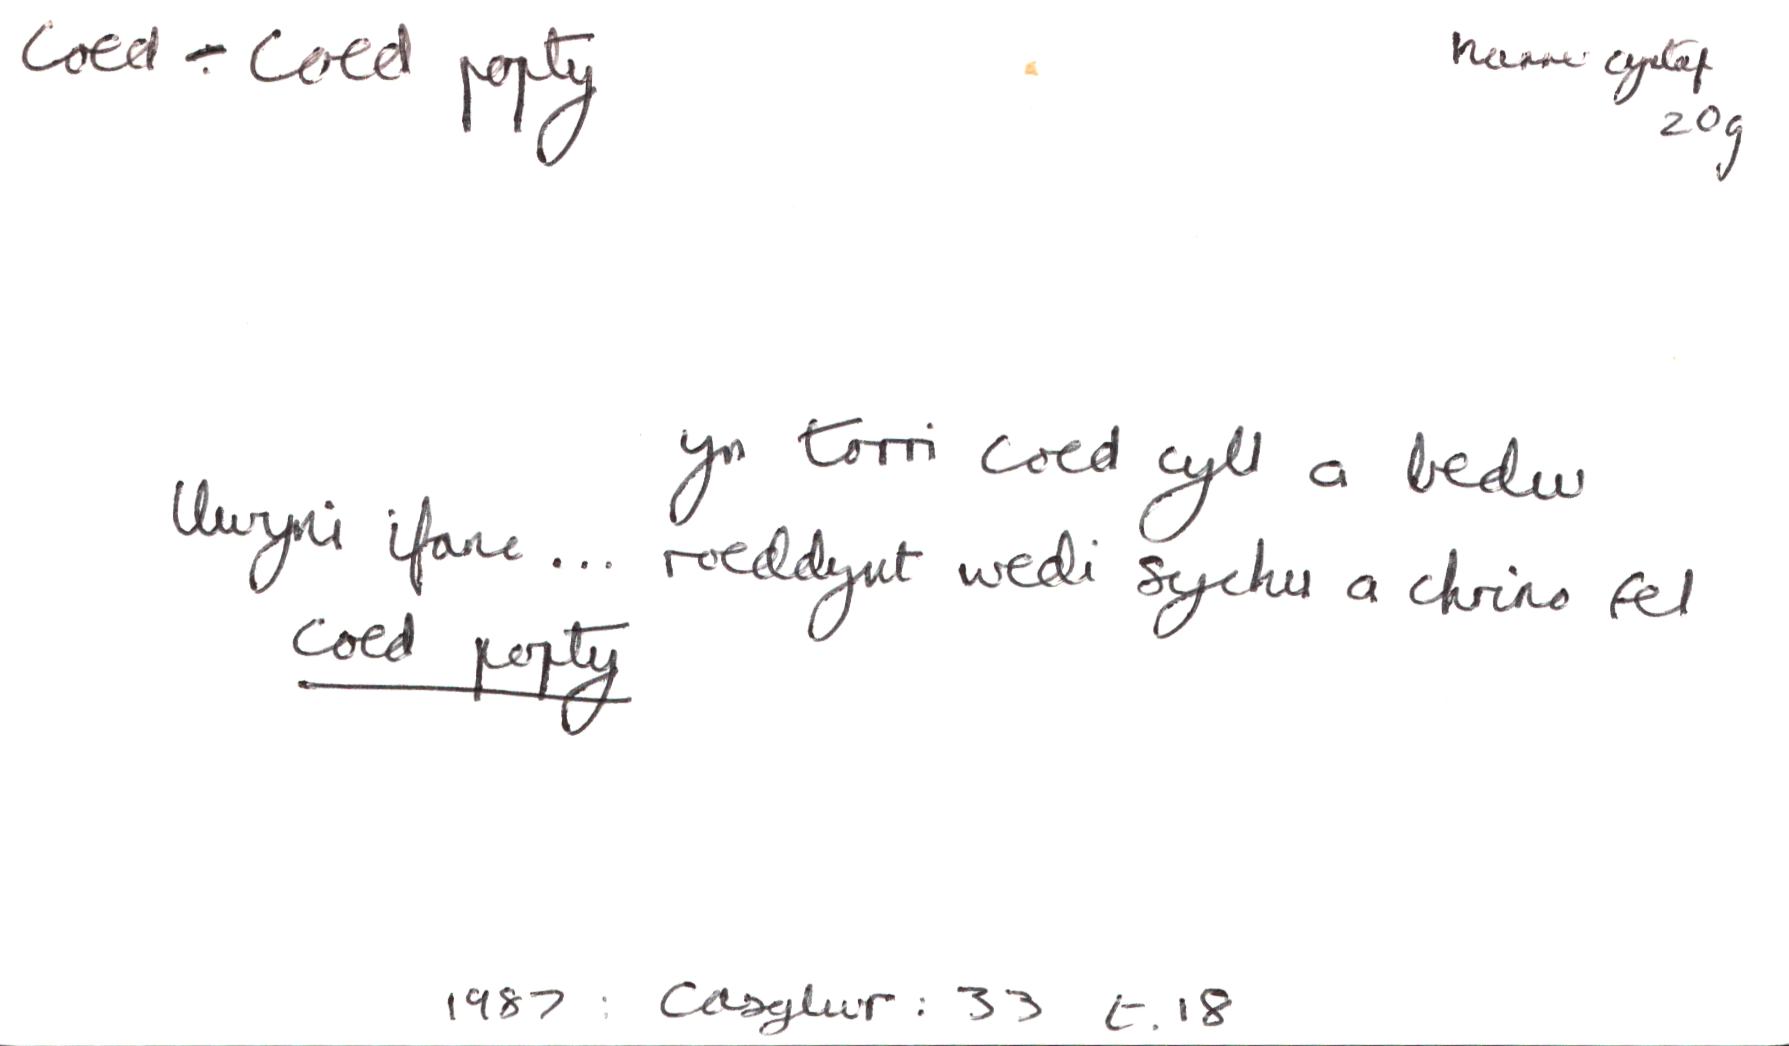 Coed - Coed popty
hanner cyntaf
20g
yn torri coed cyll a bedw
llwyni ifanc... roeddynt wedi sychu a chrino fel
coed popty
1987 : Casglwr : 33 t.18